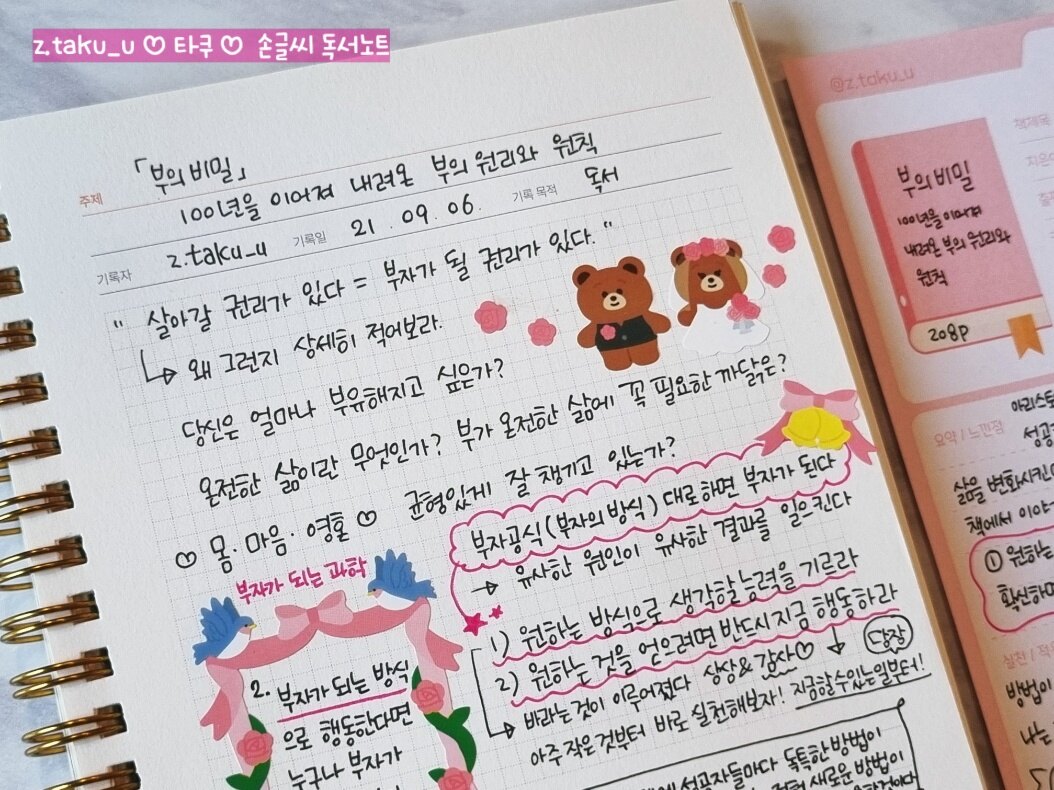 z.taku_u ♡ 타쿠 ♡ 손글씨 독서노트
주제 「부의 비밀」
100년을 이어져 내려온 부의 원리와 원칙
기록자 z.taku_u 기록일 21. 09. 06. 기록 목적 독서
" 살아갈 권리가 있다 = 부자가 될 권리가 있다. "
↳ 왜 그런지 상세히 적어보라.
당신은 얼마나 부유해지고 싶은가?
온전한 삶이란 무엇인가? 부가 온전한 삶에 꼭 필요한 까닭은?
♡ 몸·마음·영혼 ♡ 균형있게 잘 챙기고 있는가?
부자가 되는 과학
2. 부자가 되는 방식
으로 행동한다면
누구나 부자가
부자공식(부자의 방식)대로하면 부자가 된다
→ 유사한 원인이 유사한 결과를 일으킨다
1) 원하는 방식으로 생각할 능력을 기르라
2) 원하는 것을 얻으려면 반드시 지금 행동하라
당장
바라는 것이 이루어졌다 상상&감사♡
아주 작은것부터 바로 실천해보자! 지금할수있는일부터!
성공자들마다 독특한 방법이
새로운 방법이
@z.taku_u
책제목
부의 비밀
100년을 이어져
내려온 부의 원리와
원칙
208p
요약 / 느낀점
성공
삶을 변화시킨
책에서 이야
① 원하는
확신하며
실천 / 적
방법이
나는